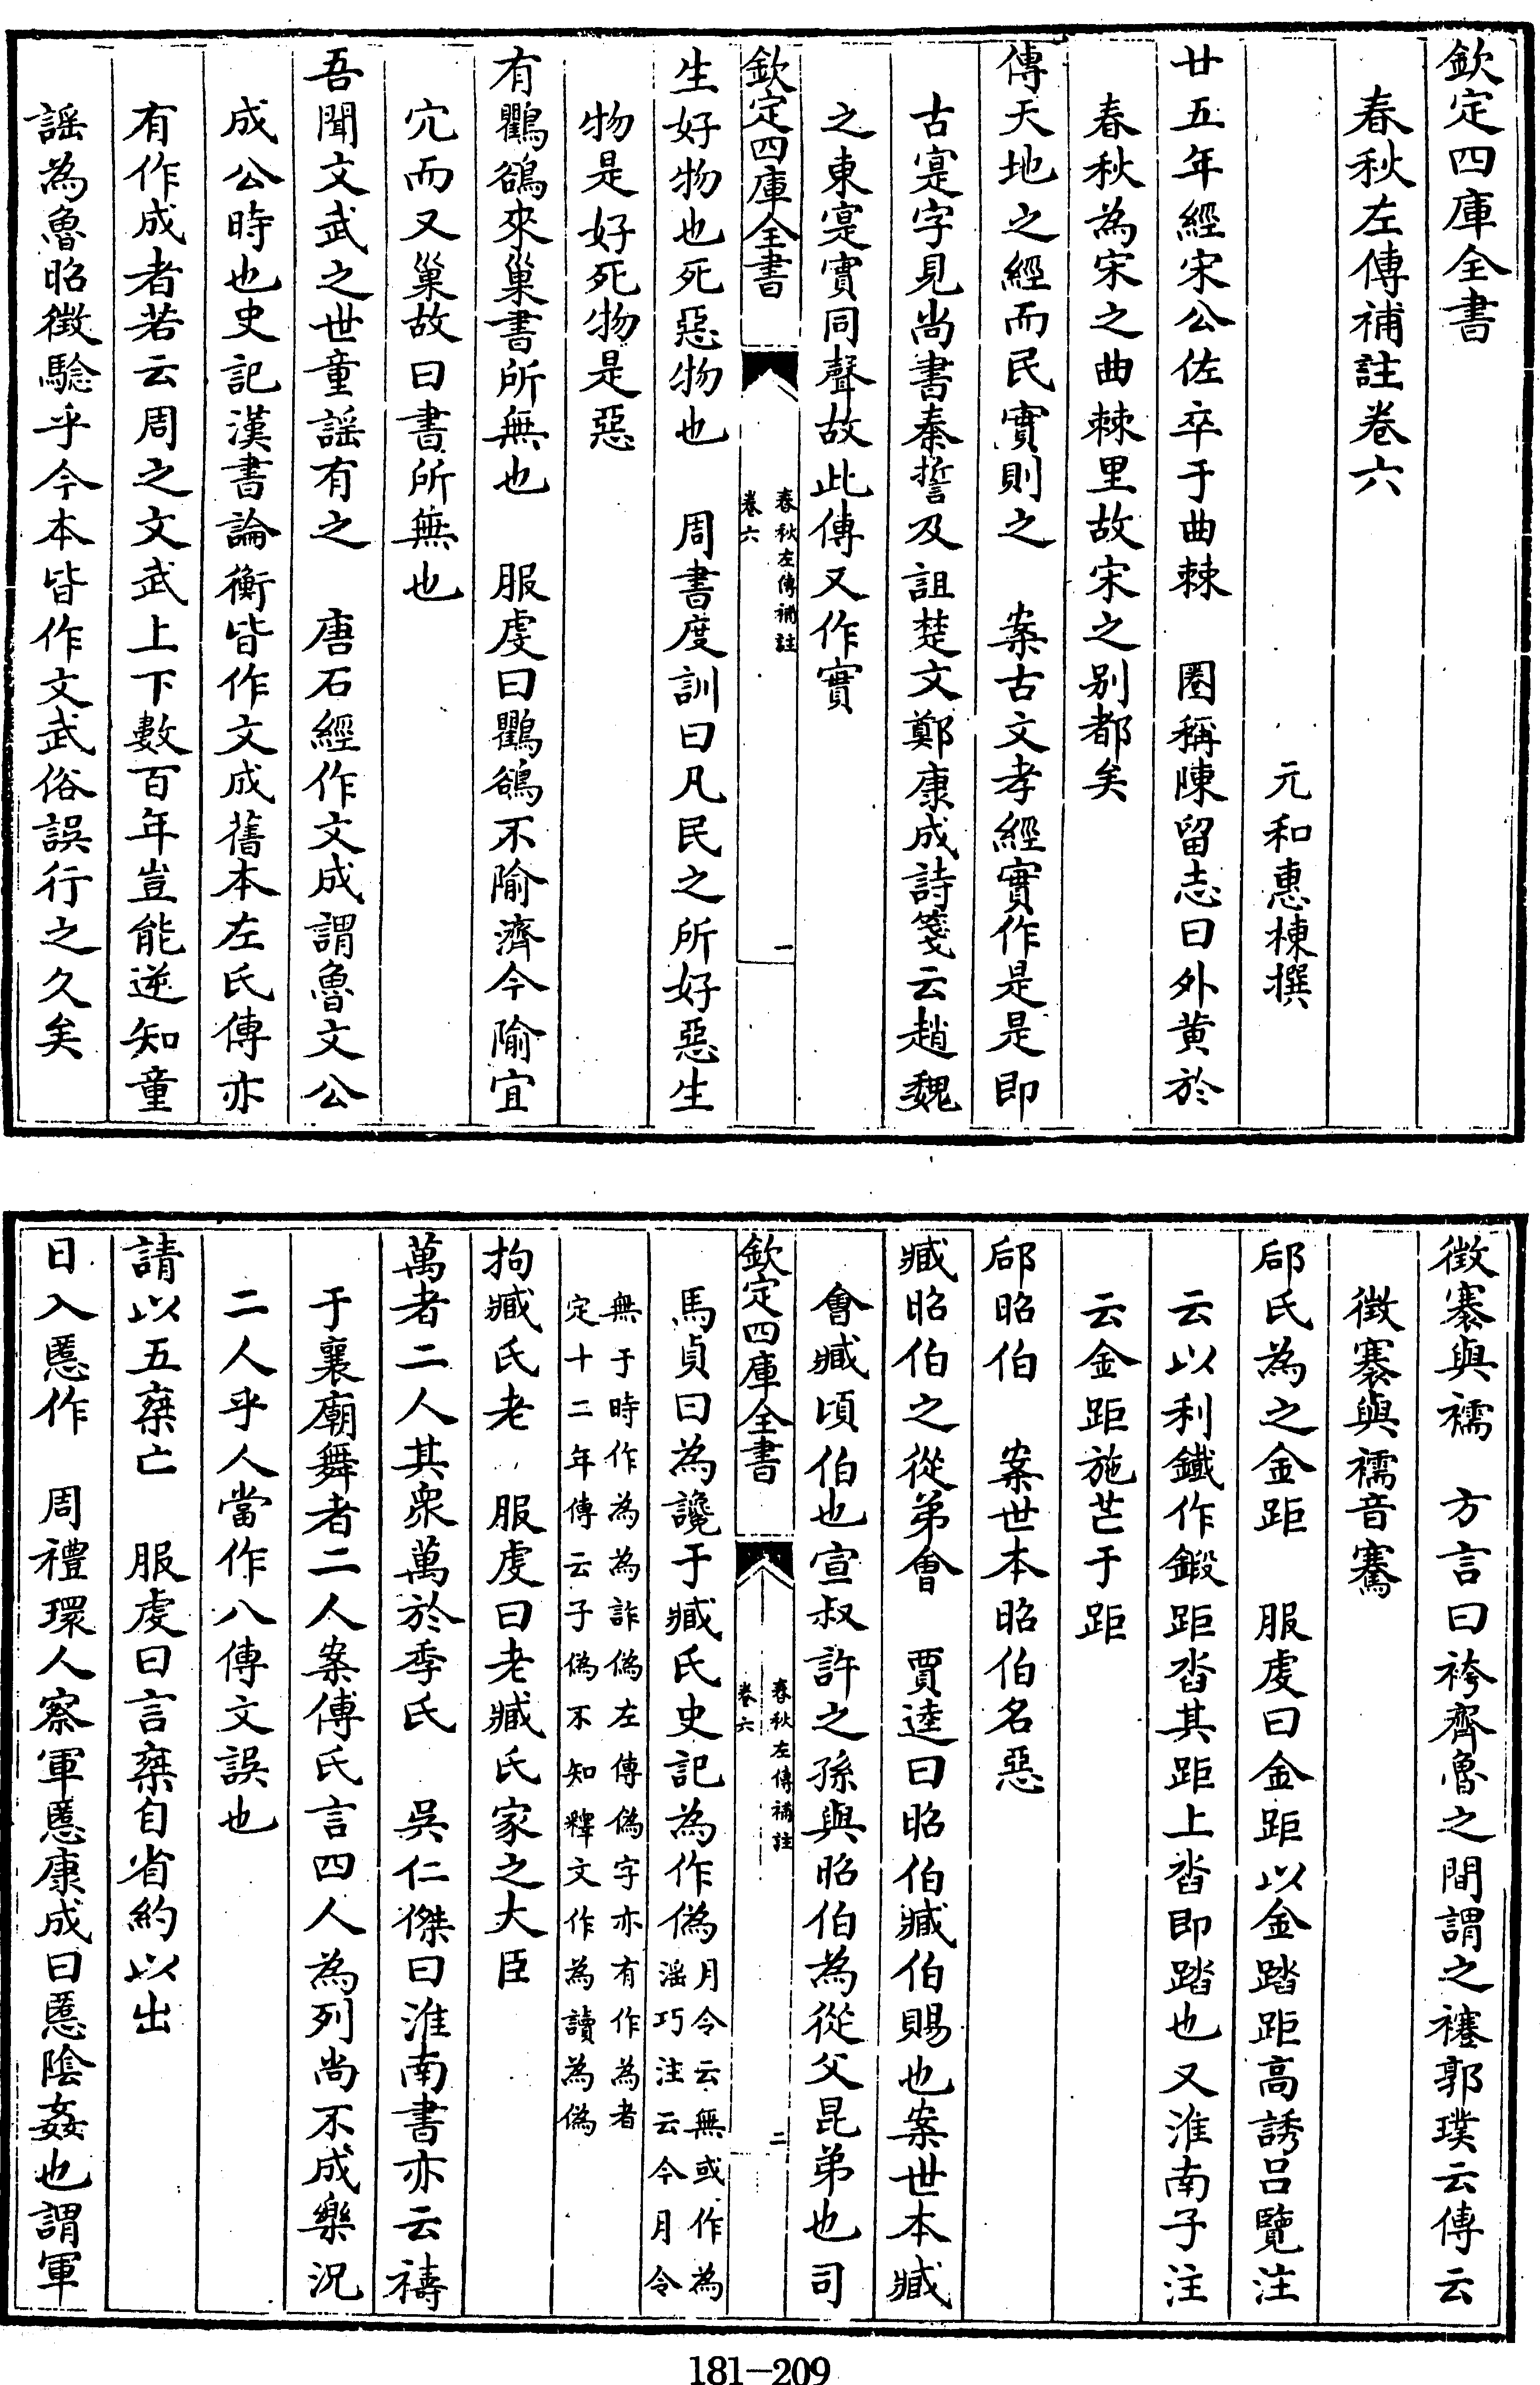 欽定四庫全書
春秋左傳補註卷六
元和惠棟撰
廿五年經宋公佐卒于曲棘　圈稱陳留志曰外黄於
春秋為宋之曲棘里故宋之别都矣
傳天地之經而民實則之　案古文孝經實作是是即
古寔字見尚書秦誓及詛楚文鄭康成詩箋云趙魏
之東寔實同聲故此傳又作實
欽定四庫全書
春秋左傳補註
卷六
一
生好物也死惡物也　周書度訓曰凡民之所好惡生
物是好死物是惡
有鸜鵒來巢書所無也　服虔曰鸜鵒不隃濟今隃宜
穴而又巢故曰書所無也
吾聞文武之世童謡有之　唐石經作文成謂魯文公
成公時也史記漢書論衡皆作文成舊本左氏傳亦
有作成者若云周之文武上下數百年豈能逆知童
謡為魯昭徴騐乎今本皆作文武俗誤行之久矣
徴褰與襦　方言曰袴齊魯之間謂之襱郭璞云傳云
徴褰與襦音騫
郈氏為之金距　服虔曰金距以金踏距高誘吕覽注
云以利鐵作鍛距沓其距上沓即踏也又淮南子注
云金距施芒于距
郈昭伯　案世本昭伯名惡
臧昭伯之從弟㑹　賈逵曰昭伯臧伯賜也案世本臧
㑹臧頃伯也宣叔許之孫與昭伯為從父昆弟也司
欽定四庫全書
春秋左傳補註
卷六
二
馬貞曰為讒于臧氏史記為作偽月令云無或作為
淫巧注云今月令
無于時作為為詐偽左傳偽字亦有作為者
定十二年傳云子偽不知釋文作為讀為偽
拘臧氏老　服虔曰老臧氏家之大臣
萬者二人其衆萬於季氏　吳仁傑曰淮南書亦云禱
于襄廟舞者二人案傅氏言四人為列尚不成樂況
二人乎人當作八傳文誤也
請以五椉亡　服虔曰言椉自省約以出
日入慝作　周禮環人察軍慝康成曰慝陰姦也謂軍
181-209